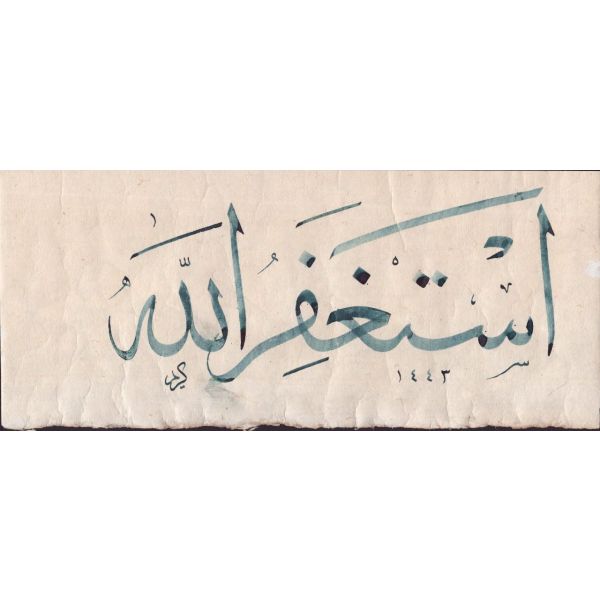 اَسْتَغْفِرُ اللّٰهَ
١٤٤٣